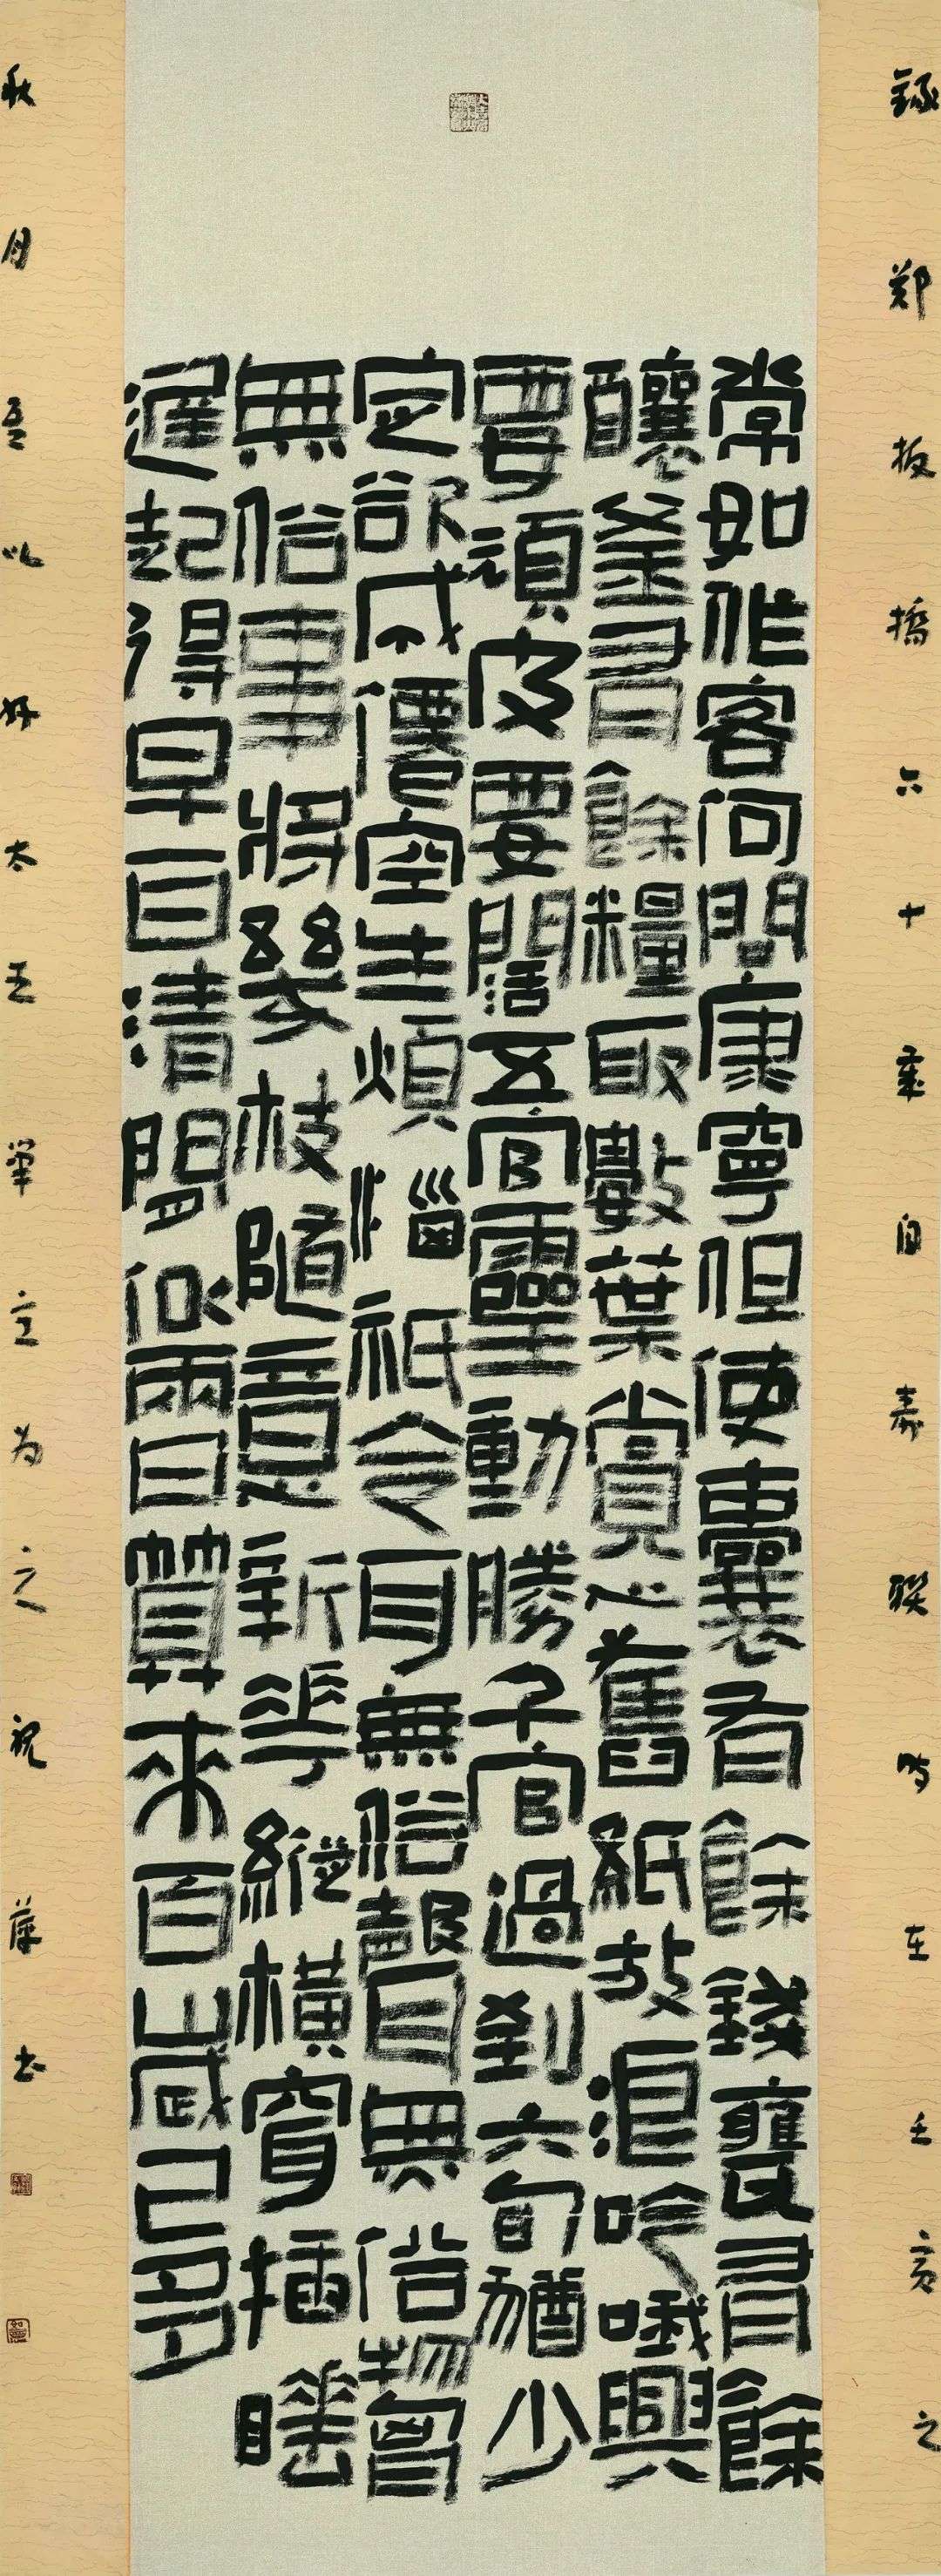 録郑板橋六十壽自寿联时在亥之
常如作客何問康寧但使囊有餘錢甕有餘
釀釜有餘糧取數葉賞心舊紙放浪吟哦興
要頑皮要闊五官靈動勝千官過到六旬猶少
定欲成僊空生煩惱衹令耳無俗聲目無俗物胷
無俗事將幾枝隨意新花縱橫穿插睡
遲起得早一日清閒似兩日算來百歲已多
秋月吾以好太王筆为之祝书